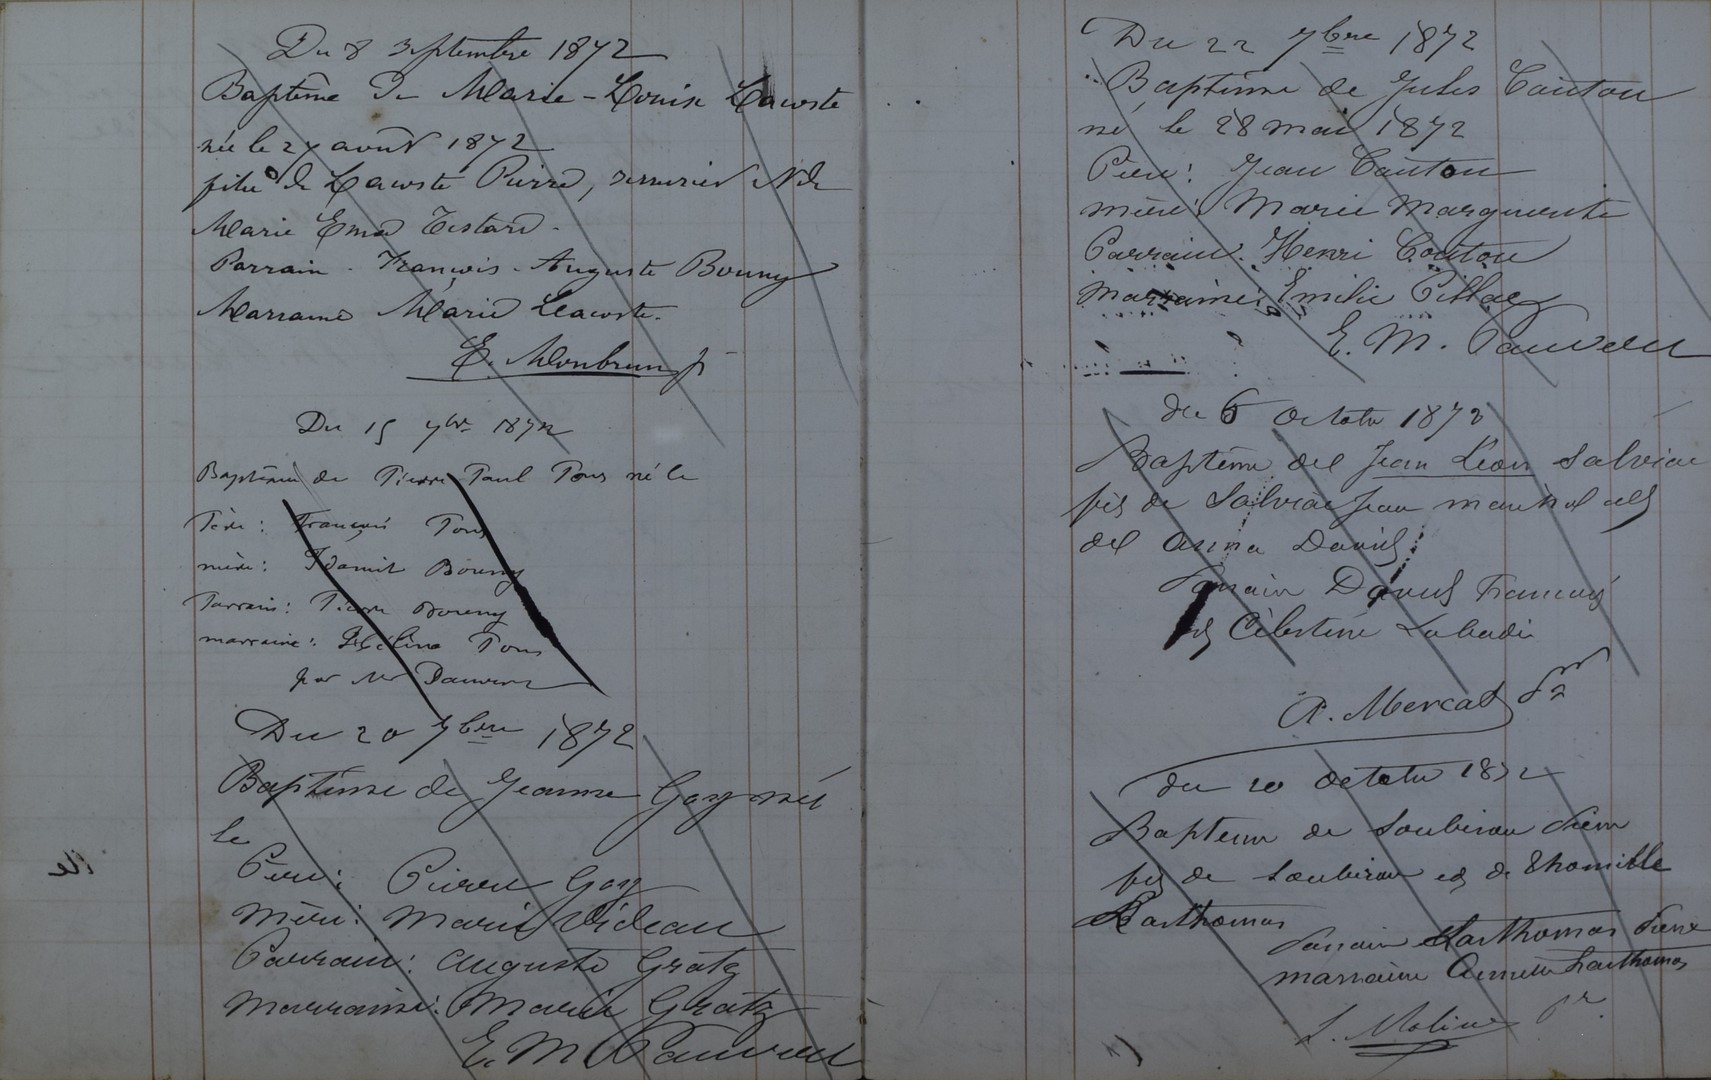 Du 8 Septembre 1872
Baptême de Marie-Louise Lacoste
née le 27 août 1872
fille de Lacoste Pierre, serrurier & de
Marie Ema Testard.
Parrain. François-Auguste Bouny
Marraine Marie Lacoste.
E. Monbrun
Du 15 7bre 1872
Baptême de Pierre Paul Pons né le
Père: François Pons
mère: Bouny
Parrain: Pierre Bouny
marraine: Pons
par Mr
Du 20 7bre 1872
Baptême de Jeanne Goz née
le
Père: Pierre Goz
Mère: Marie Videau
Parrain: Auguste Gratz
Marraine: Marie Gratz
E. M.
Du 22 7bre 1872
Baptême de Jules Couton
né le 28 mai 1872
Père: Jean Couton
mère: Marie Marguerite
Parrain: Henri Couton
Marraine: Emilie
E. M.
du 6 octobre 1872
Baptême de Jean Léon Salviac
fils de Salviac Jean et
de Anna David
Parrain David François
et Célestine Labadie
A. Mercat
du 20 octobre 1872
Bapteme de Soubiran Pierre
fils de Soubiran et de
Larthomas
Parrain Larthomas Pierre
marraine Larthomas
L. Moline pr.